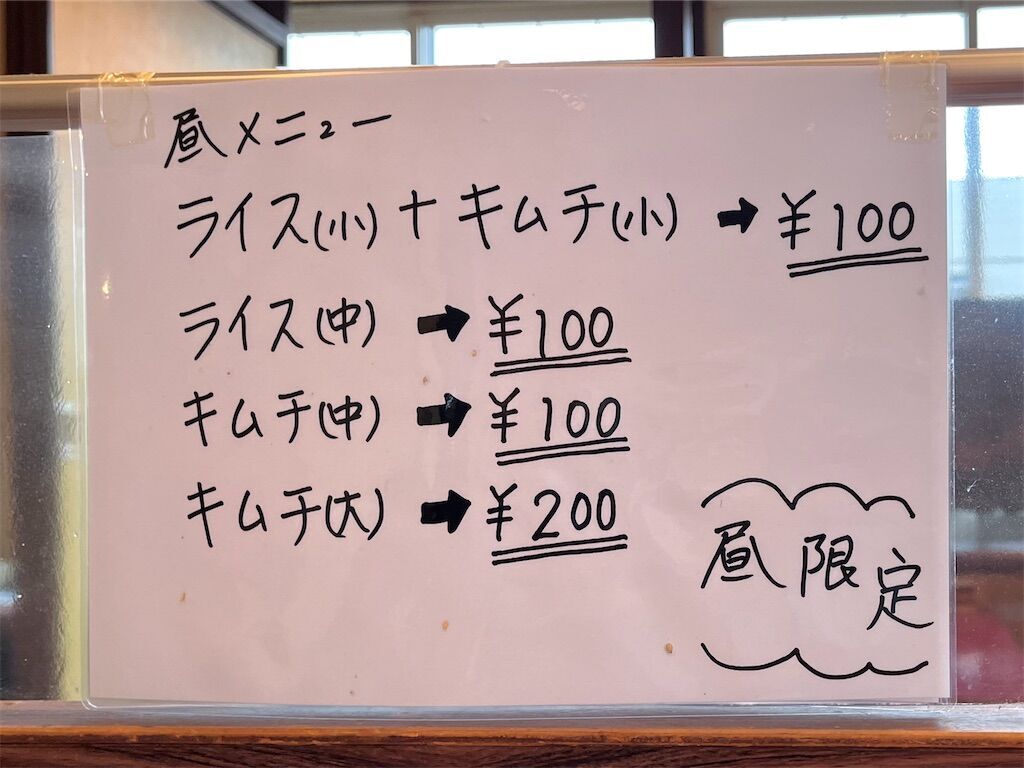 昼メニュー
ライス(小)+キムチ(小) ➡ ¥100
ライス(中) ➡ ¥100
キムチ(中) ➡ ¥100
キムチ(大) ➡ ¥200
昼限定